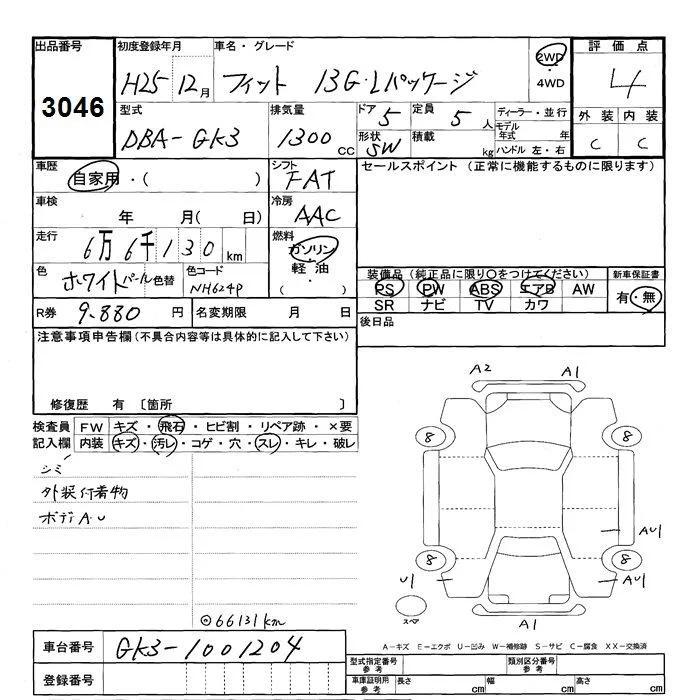 出品番号 初度登録年月 車名・グレード 評価点
3046 H25 12月 フィット 13G・Lパッケージ 2WD・4WD 4
型式 排気量 ドア 5 定員 5人 ディーラー・並行 外装 内装
DBA-GK3 1300cc 形状 SW 積載 kg モデル年式 年 ハンドル 左・右 C C
車歴 シフト セールスポイント (正常に機能するものに限ります)
自家用・( ) FAT
車検 冷房
年 月( 日) AAC
走行 燃料
6万6千130km ガソリン・軽油・( )
色 色コード 装備品 (純正品に限り○をつけてください) 新車保証書
ホワイトパール 色替 NH624P PS PW ABS エアB AW 有・無
SR ナビ TV カワ
R券 9.880円 名変期限 月 日 後日品
注意事項申告欄(不具合内容等は具体的に記入して下さい)
修復歴 有 〔箇所 〕
検査員 FW キズ・飛石・ヒビ割・リペア跡・×要
記入欄 内装 キズ・汚レ・コゲ・穴・スレ・キレ・破レ
シミ
外装付着物
ボディA.U
◎66131km
A2 A1
8 8
AU1
8 8
U1 AU1
スペア A1
A-キズ E-エクボ U-凹み W-補修跡 S-サビ C-腐食 XX-交換済
車台番号 GK3-1001204
型式指定番号 参考 類別区分番号 参考
登録番号 車庫証明用 参考 長さ cm 幅 cm 高さ cm